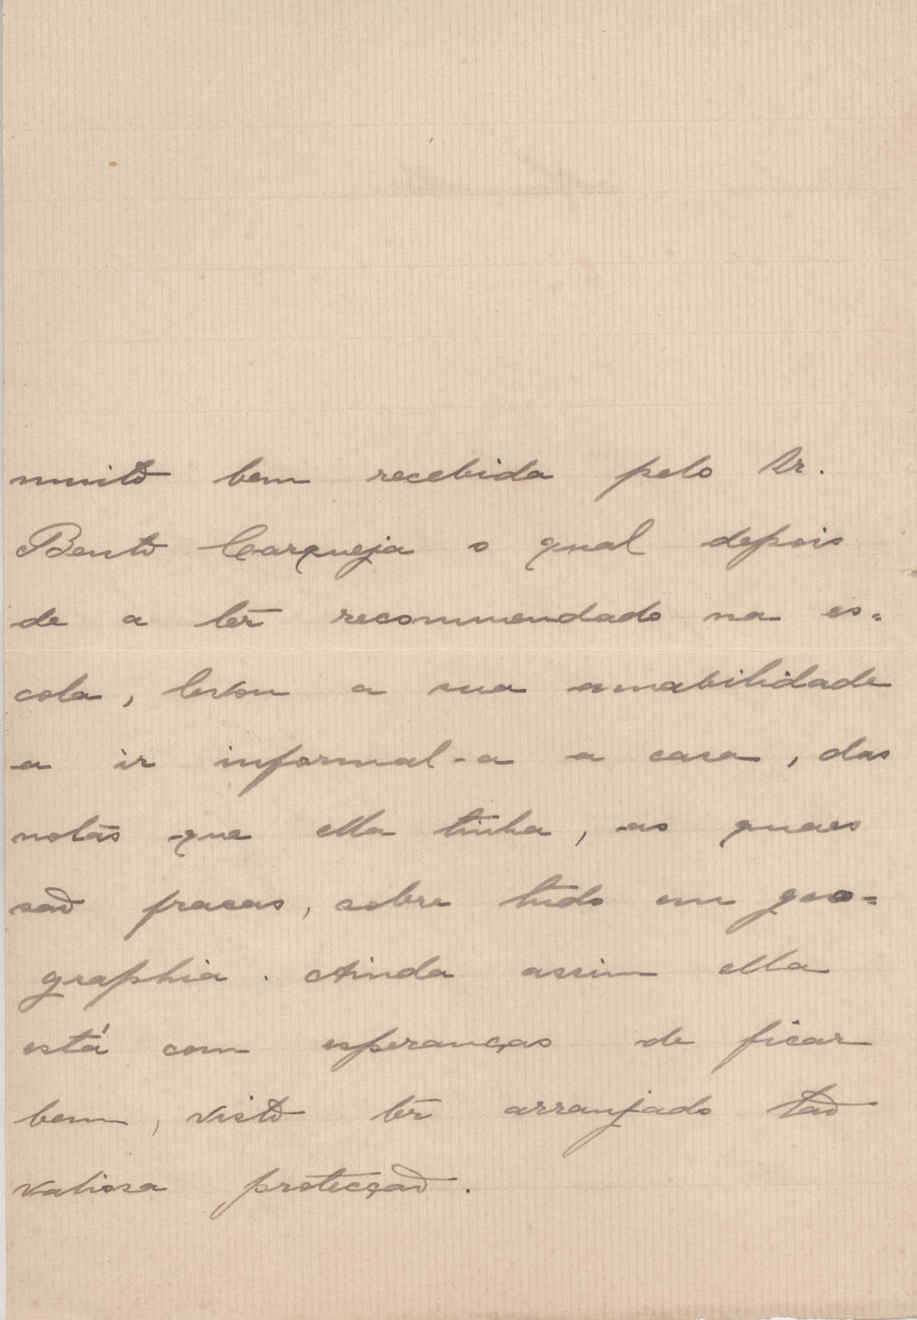 muito bem recebida pelo Dr.
Bento Carqueja o qual depois
de a ter recommendado na es=
cola, levou a sua amabilidade
a ir informal-a a casa, das
notas que ella tinha, as quaes
são fracas, sobre tudo em geo=
graphia. Ainda assim ella
está com esperanças de ficar
bem, visto ter arranjado tão
valiosa protecção.